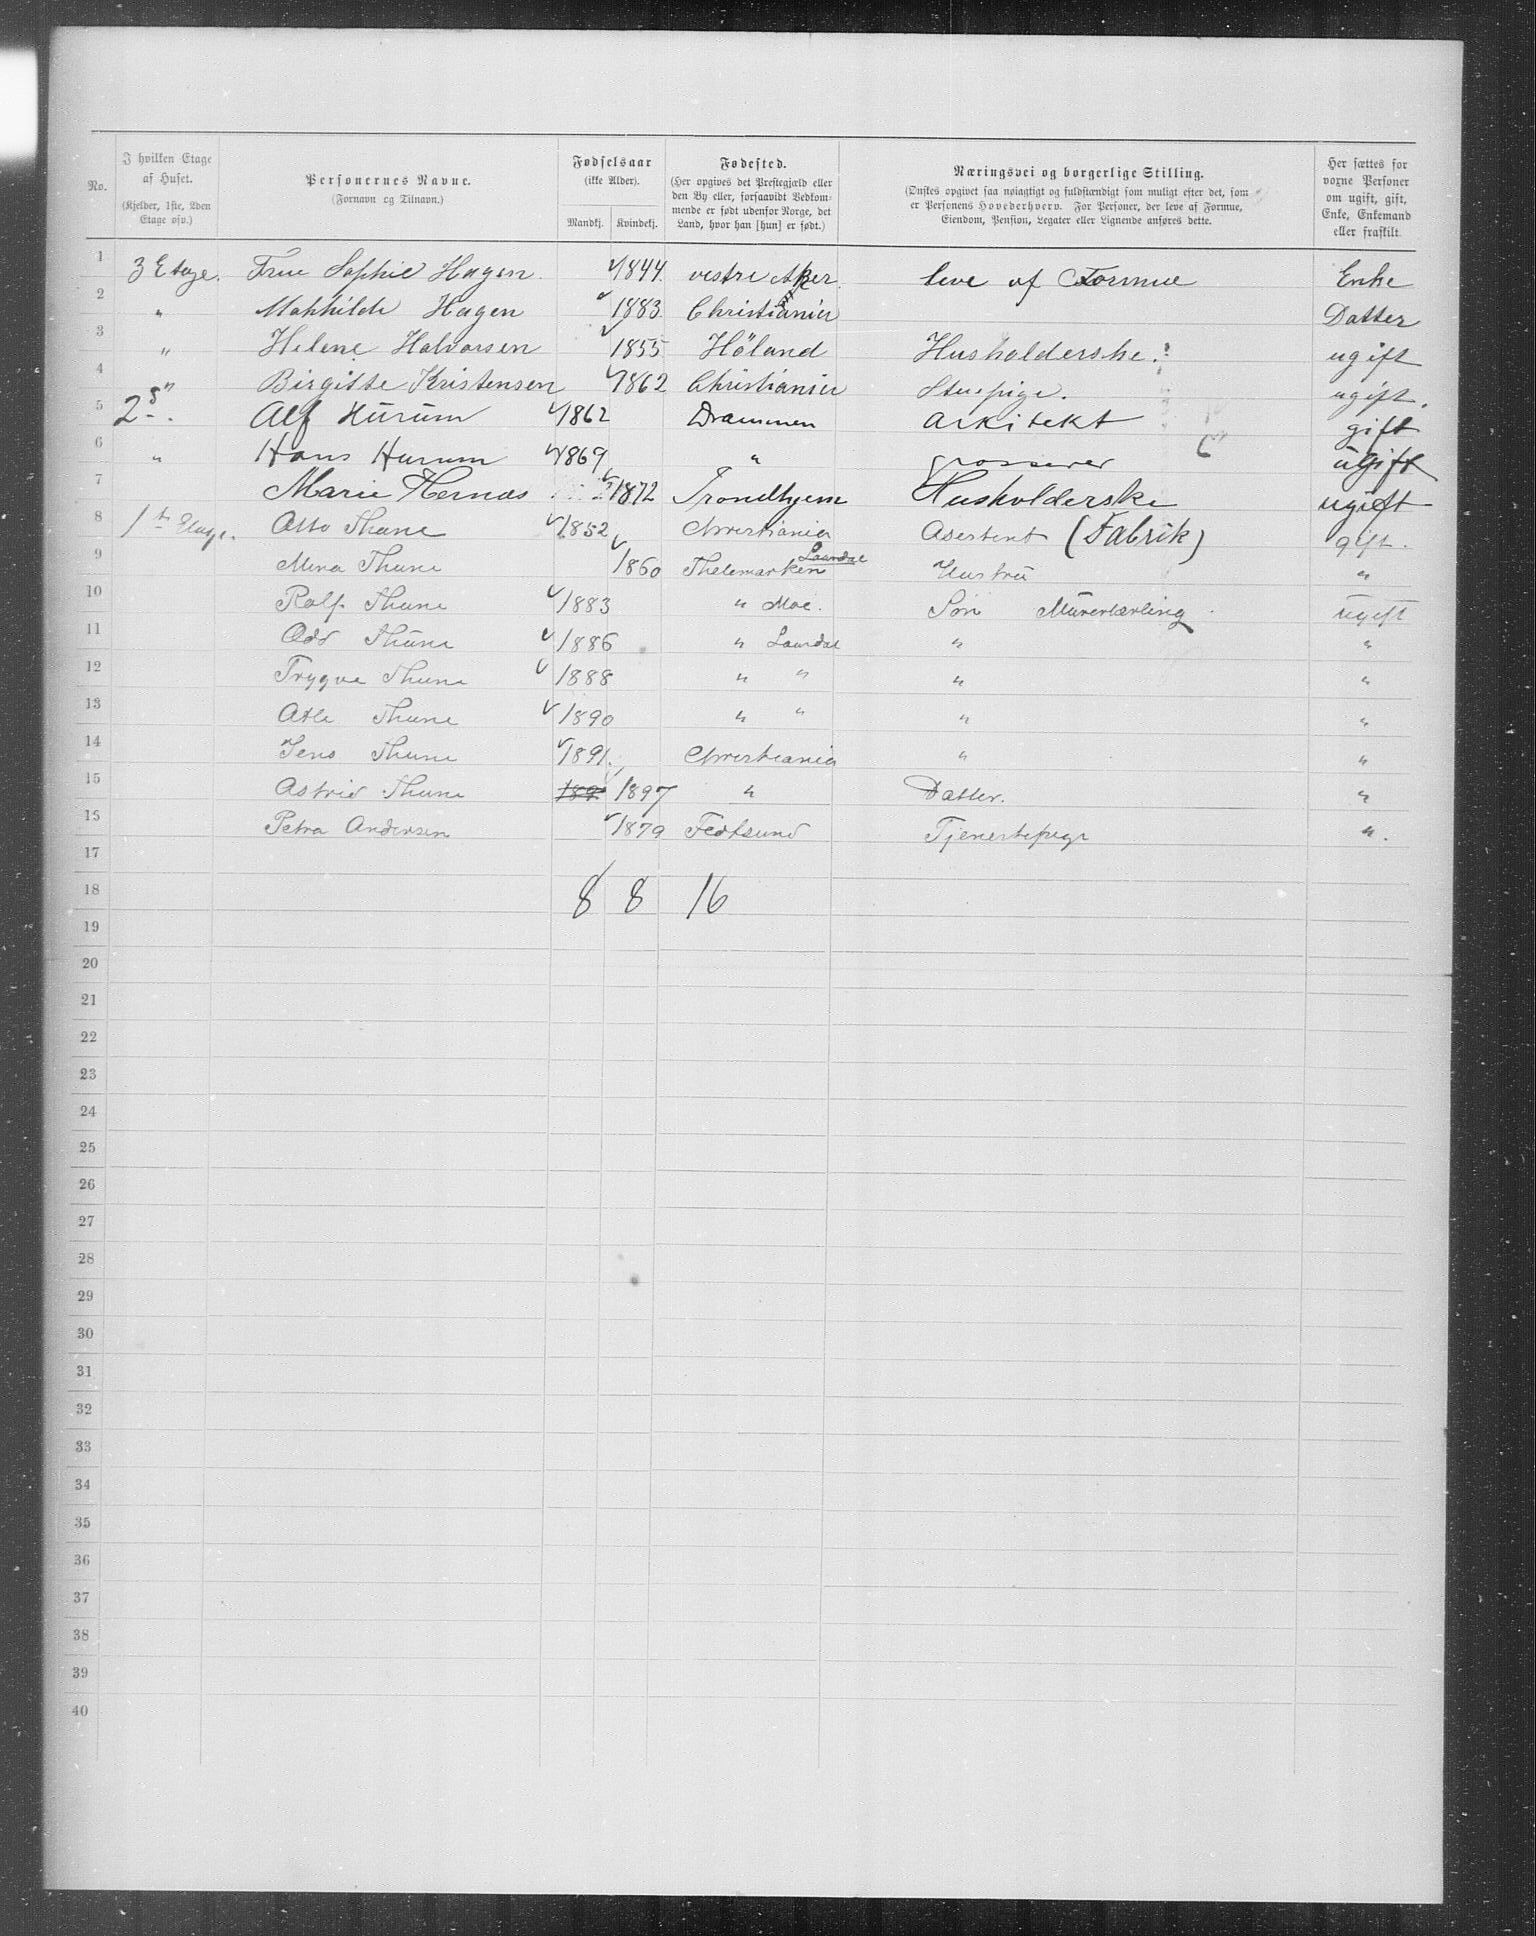 No. I hvilken Etage af Huset. (Kjelder, 1ste, 2den Etage osv.) Personernes Navne. (Fornavn og Tilnavn.) Fødselsaar (ikke Alder). Mandkj. Kvindekj. Fødested. (Her opgives det Prestegjæld eller den By eller, forsaavidt Vedkommende er født udenfor Norge, det Land, hvor han [hun] er født.) Næringsvei og borgerlige Stilling. (Ønskes opgivet saa nøiagtigt og fuldstændigt som muligt efter det, som er Personens Hovederhverv. For Personer, der leve af Formue, Eiendom, Pension, Legater eller Lignende anføres dette. Her sættes for voxne Personer om ugift, gift, Enke, Enkemand eller fraskilt.
1 3 Etage. Frue Sophie Hagen 1844 vestre Aker leve af Formue Enke
2 " Mathilde Hagen 1883 Christiania Datter
3 " Helene Halvorsen 1855 Höland Husholderske. ugift
4 " Birgitte Kristensen 1862 Christiania Stuepige. ugift.
5 2 Alf Hürüm 1862 Drammen Arkitekt gift
6 " Hans Hurum 1869 " grosserer ugift
7 Marie Hernæs 1872 Trondhjem Husholderske ugift
8 1ste Etage. Otto Thune 1852 Christiania Asestent (Fabrik) gift.
9 Mina Thune 1860 Thelemarken Laurdal Hustru "
10 Rolf Thune 1883 " Moe. Søn Mürerlærling ugift
11 Odd Thüne 1886 " Laurdal " "
12 Trygve Thune 1888 " " " "
13 Atle Thune 1890 " " " "
14 Jens Thune 1891 Christiania " "
15 Astrid Thune 1897 " Datter. "
16 Petra Andersen 1879 Fedtsund Tjenestepige ".
17
18 8 8 16
19
20
21
22
23
24
25
26
27
28
29
30
31
32
33
34
35
36
37
38
39
40